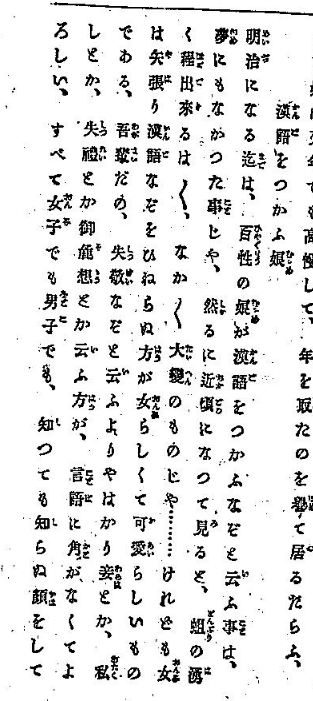 も高慢して、年を取たのを擧て居るだらふ、
漢語をつかふ娘
明治になる迄は、百性の娘が漢語をつかふなぞと云ふ事は、
夢にもなかつた事じや、然るに近頃になつて見ると、蛆の湧
く程出來るは〱、なか〱大變のものじや………けれども女
は矢張り漢語なぞをひねらぬ方が女らしくて可愛らしいもの
である、吾輩だの、失敬なぞと云ふよりやはり妾とか、私
しとか、失禮とか御麁想とか云ふ方が、言語に角がなくてよ
ろしい、すべて女子でも男子でも、知つても知らぬ顔をして